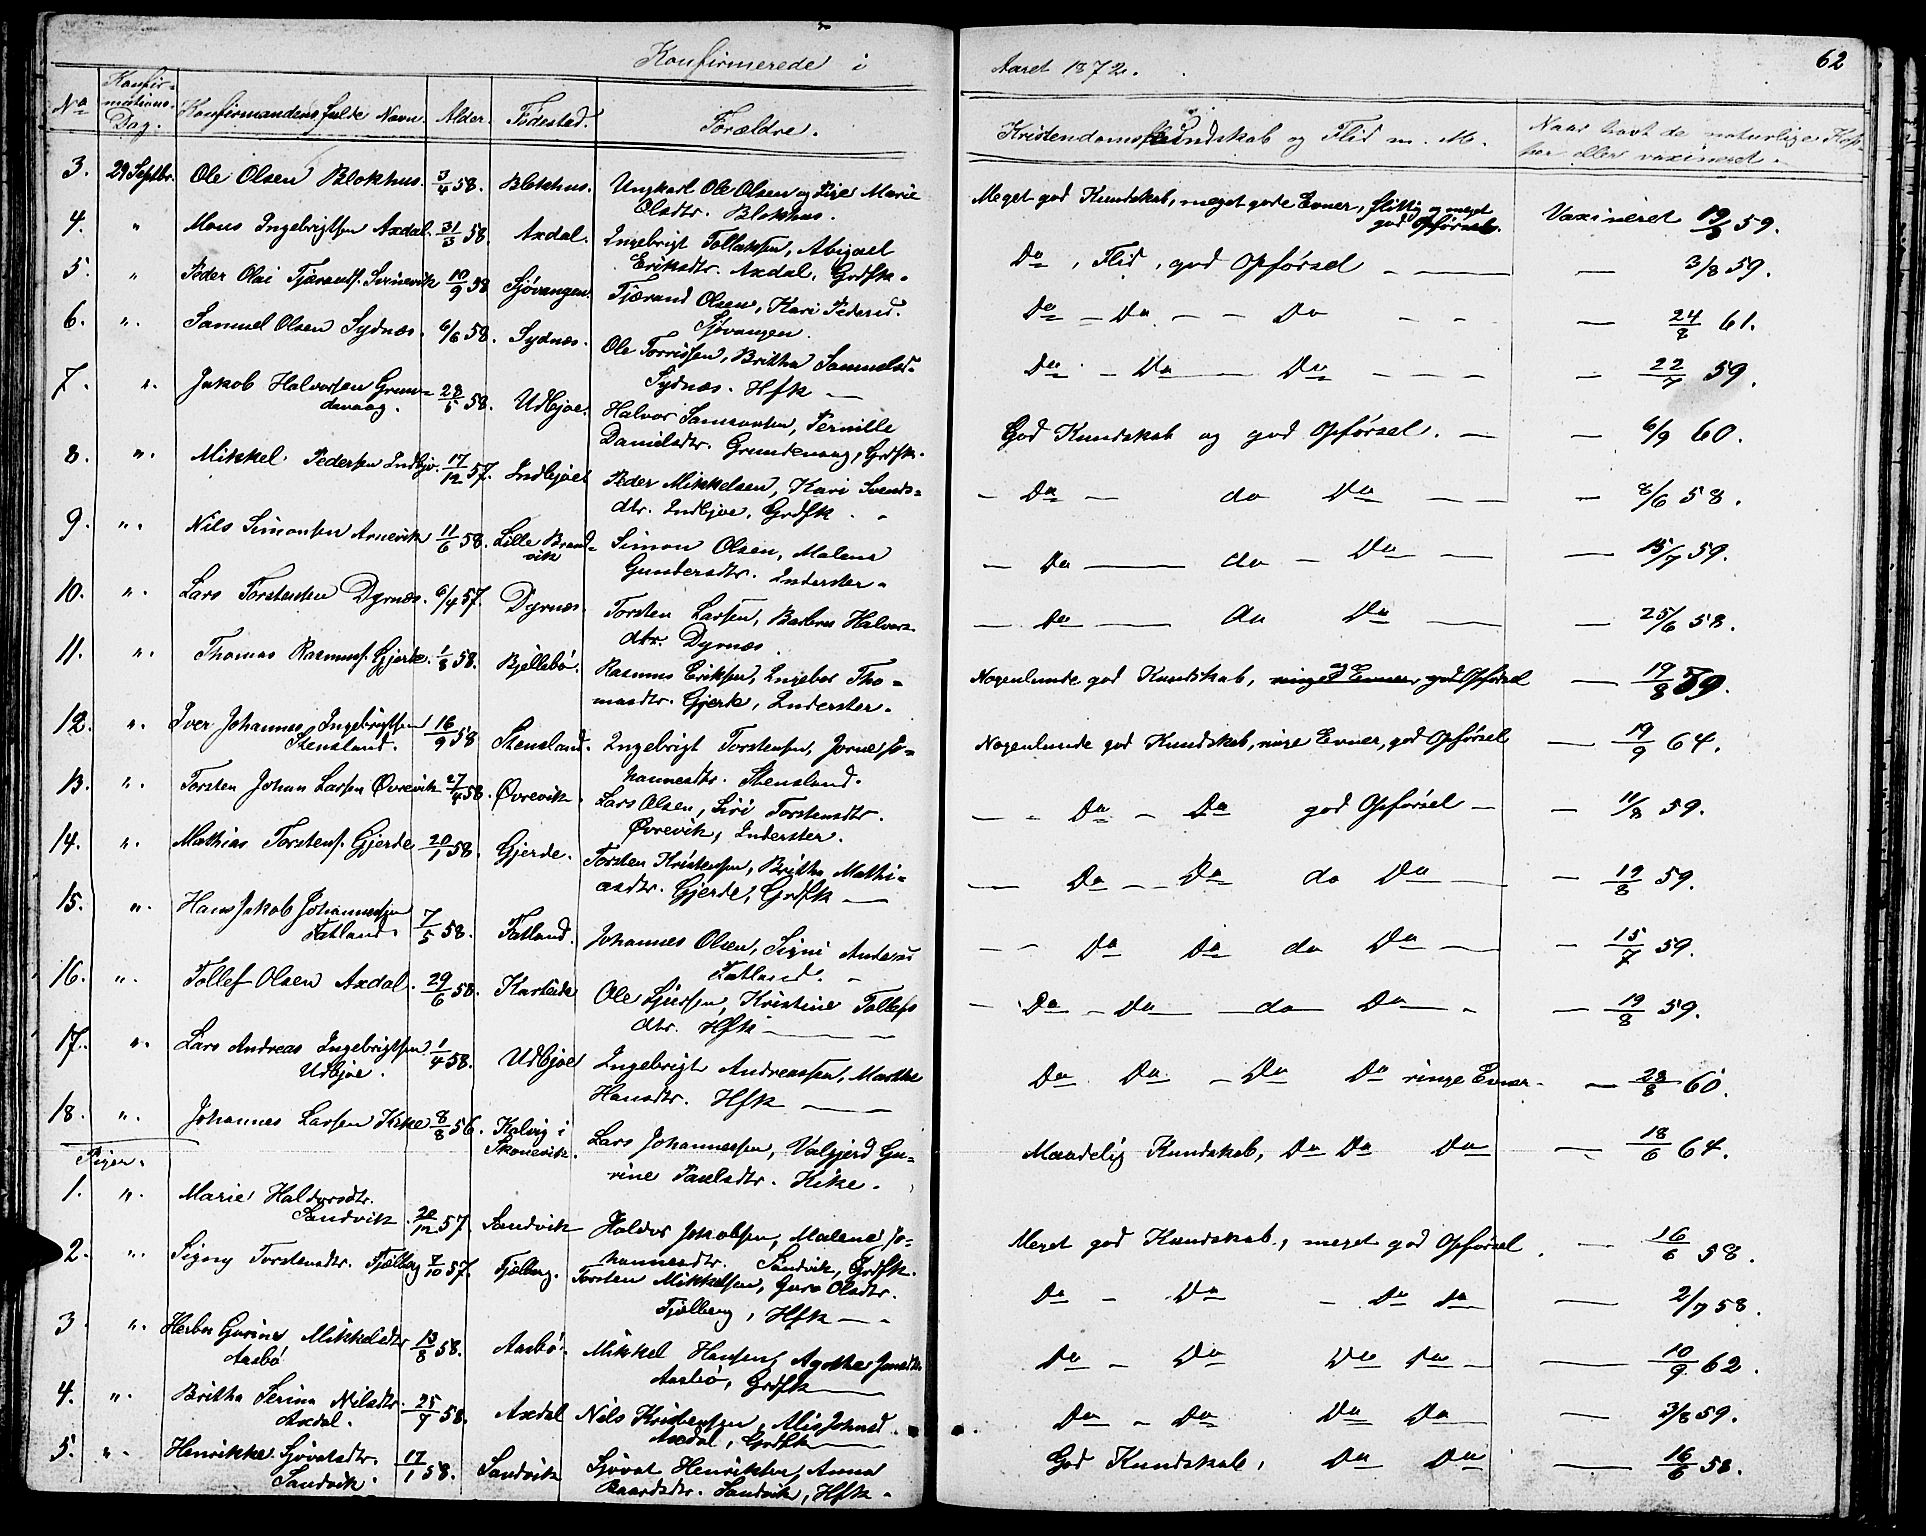 Konfirmerede i
Aaret 1872.
62
No
Konfir-
mations-
Dag.
Konfirmandens fulde Navn.
Alder.
Fødested.
Forældre.
Kristendomskundskab og Flid m. M.
Naar havt de naturlige Kop-
per eller vaxineret.
3. 29 Septbr. Ole Olsen Blokhus. 3/4 58. Blokhus. Ungkarl Ole Olsen og Pige Marie
Olsdtr. Blokhus.
Meget god Kundskab, meget gode Evner, flittig og meget
god Opførsel. Vaxineret 19/8 59.
4. " Mons Ingebrigtsen Axdal. 31/3 58. Axdal. Ingebrigt Tollaksen, Abigael
Eriksdtr. Axdal, Grdfk.
Do, Flid, god Opførsel — 3/8 59.
5. " Peder Olai Tjærandsf. Svinevik 10/9 58 Sjövangen. Tjærand Olsen, Kari Pedersd.
Sjøvangen.
Do - Do - - Do - - — 24/8 61.
6. " Samuel Olsen Sydnæs. 6/6 58. Sydnæs. Ole Torrissen, Britha Samuelsd.
Sydnæs. Hfk —
Do - Do - Do - - - — 22/7 59.
7. " Jakob Halvorsen Grun-
devaag. 28/5 58. Udbjoe. Halvor Samsonsen, Pernille
Danielsdtr. Grundevaag, Grdfk.
God Kundskab og god Opførsel. — 6/9 60.
8. " Mikkel Pedersen Indbjo. 17/12 57. Indbjoe Peder Mikkelsen, Kari Svends-
dtr. Indbjoe, Grdfk.
- Do - do Do — 8/6 58.
9. " Nils Simonsen Arnevik 11/6 58. Lille Brand-
vik Simon Olsen, Malena
Gundersdtr. Inderster.
— Do — do - Do — 15/7 59.
10. " Lars Torstensen Dyrnæs. 6/4 57. Dyrnæs. Torsten Larsen, Barbru Halvors-
dtr. Dyrnæs.
— Do — do Do — 25/6 58.
11. " Thomas Rasmusf. Gjerde. 1/8 58. Bjellebö. Rasmus Eriksen, Ingebor Tho-
masdtr. Gjerde, Inderster.
Nogenlunde god Kundskab, ringe Evner, god Opførsel — 19/8 59.
12. " Iver Johannes Ingebrigtsen
Stensland. 16/9 58 Stensland. Ingebrigt Torstensen, Jorne Jo-
hannesdtr. Stensland.
Nogenlunde god Kundskab, ringe Evner, god Opførsel — 19/9 64.
13. " Torsten Johan Larsen Øvrevik 27/4 58. Øvrevik. Lars Olsen, Siri Torstensdtr.
Øvrevik, Inderster.
— - Do - Do god Opførsel — 11/8 59.
14. " Mathias Torstensf. Gjerde 20/1 58. Gjerde. Torsten Kristensen, Britha Mathi-
asdtr. Gjerde, Grdfk —
— Do - Do do Do — 19/8 59.
15. " Hans Jakob Johannessen
Fatland. 7/5 58. Fatland. Johannes Olsen, Signi Andersd
Fatland.
- - Do Do do Do — 15/7 59.
16. " Tollef Olsen Axdal. 29/6 58. Karteide Ole Sjursen, Kristine Tollefs
dtr. Hfk —
- Do - Do - do - Do - — 19/8 59.
17. " Lars Andreas Ingebrigtsen
Udbjoe. 1/4 58. Udbjoe Ingebrigt Andreassen, Marthe
Hansdtr. Hfk —
Do Do - Do Do ringe Evner. — 28/8 60.
18. " Johannes Larsen Kike 8/8 56. Kalvig i
Skonevik. Lars Johannessen, Valgjerd Gu-
rine Paulsdtr. Kike.
Maadelig Kundskab, Do Do Do — 18/6 64.
Piger.
1. " Marie Haldorsdtr.
Sandvik. 20/12 57. Sandvik Haldor Jakobsen, Malene Jo-
hannesdtr. Sandvik, Grdfk.
Meget god Kundskab, meget god Opførsel. — 16/6 58.
2. " Signy Torstensdtr. Fjælberg 7/10 57. Fjælberg. Torsten Mikkelsen, Guro Olsdtr.
Fjælberg, Hfk —
Do - Do - Do Do — 2/7 58.
3. " Herbor Gurine Mikkelsdtr
Aasbö 13/8 58. Aasbö. Mikkel Hansen, Agothe Jonsdtr
Aasbø, Grdfk —
Do - Do Do Do — 10/9 62.
4. " Britha Serina Nilsdtr
Axdal. 25/7 58. Axdal Nils Kristensen, Alis Johnsd.
Axdal, Grdfk —
Do - Do Do Do — 3/8 59.
5. " Henrikke Sjovatsdtr.
Sandvik. 17/1 58. Sandvik Sjovat Henriksen, Anna
Baardsdtr. Sandvik, Hfk.
God Kundskab, Do Do — 16/6 58.